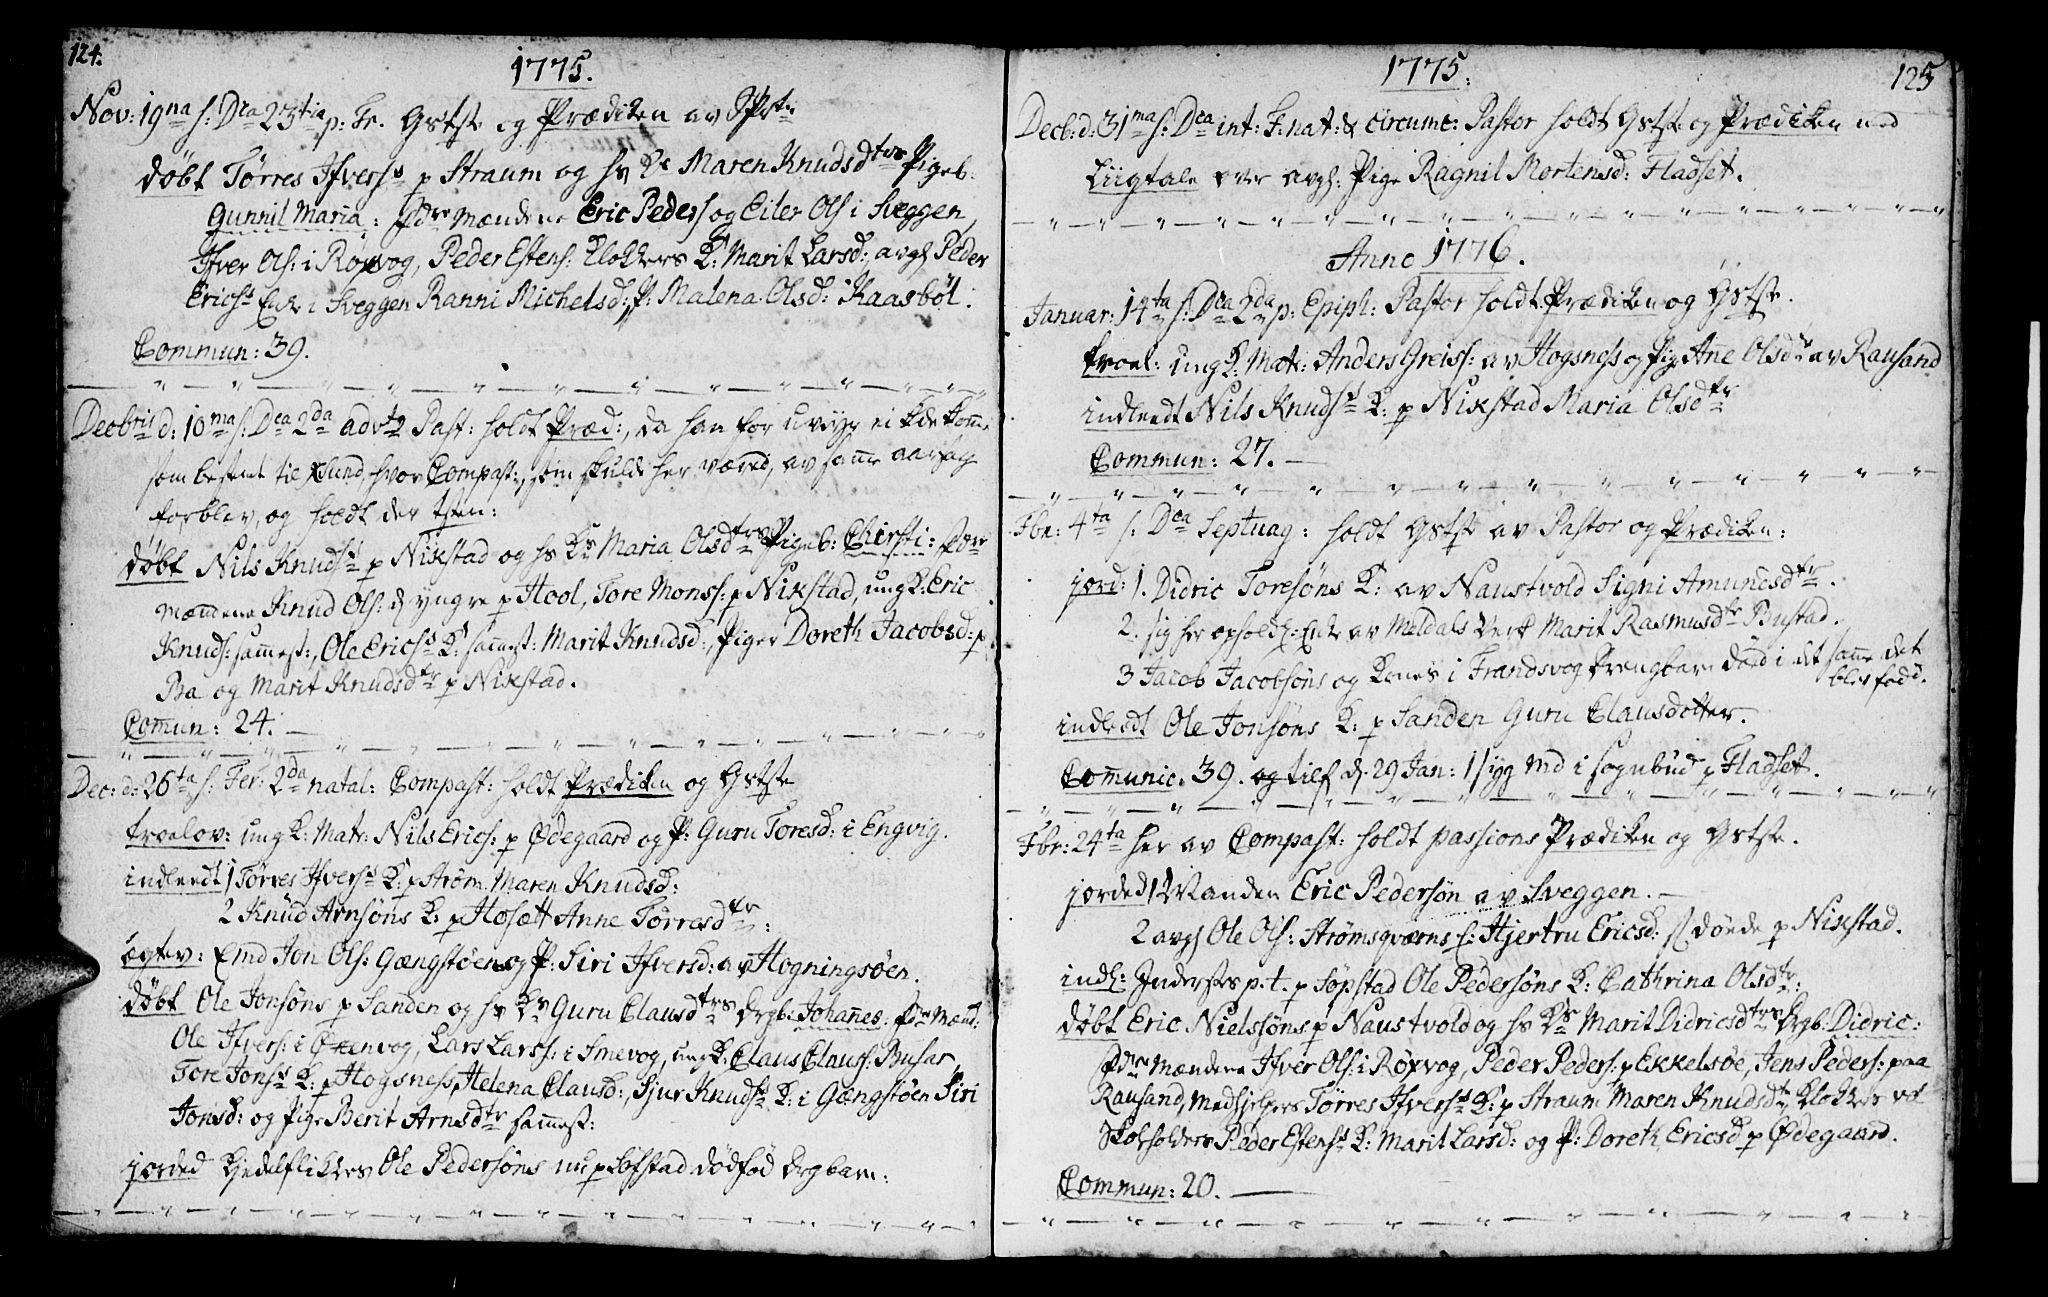 124.
1775.
Nov: 19na s: Dca 23tia p: Tr. Gstste og Prædiken av
døbt Tørres Ifvers: p Straum og hs Ks Maren Knudsdtrs Pigeb:
Gunnil Maria: fdre Mændene Eric Peders og Eiler Ols i Sveggen,
Ifver Ols: i Røxvog, Peder Estens: Klokkers K: Marit Larsd:, avgs Peder
Erics: Enke i Sveggen Ranni Michelsd:, P: Malena Olsd: Kaasbøl.
Commun: 39.
Decbris d: 10ma s: Dca 2da advt Past: holdt Præd:, da han for uveyr ei kde komme
som bestemt til Xsund, hvor Compast:, som skulde her været, av samme aarsag
forblev, og holdt der tsten:
døbt Nils Knuds: p Nixstad og hs Ks Maria Olsdtrs Pigeb: Chirsti: fdre
Mændene Knud Ols: d yngre p Hool, Tore Monss: p Nixstad, ungK: Eric
Knuds: sammest:, Ole Erics: K: sammest: Marit Knudsd:, Piger Doreth Jacobsd: p
Ba og Marit Knudsdtr p Nixstad.
Comun: 24.
Dec: d: 26ta s: Fer: 2da natal: Compast: holdt Prædiken og Gstste
troelov: ungK: Matr: Nils Erics: p Ødegaard og P: Guru Toresd: i Engvig.
indleedt 1 Tørres Ifvers: K: p Strøm Maren Knudsd:
2 Knud Arnsøns K: p Hosætt Anne Tørresdtr:
ægtev: Emd Jon Ols: Gængstøen og P: Siri Ifversd: av Hogningsøen.
døbt Ole Jonsøns p Sanden og hs Ks Guru Clausdtrs Drgb: Johanes: fdre Mænd:
Ole Ifvers: i Ørenvog, Lars Larss: i Smevog, ungK: Claus Clauss: Busar,
Tore Jons: K: p Hogsness, Helena Clausd:, Sjur Knuds: K: i Gængstøen Siri
Jonsd: og Pige Berit Arnsdtr sammest:
jorded Kjedelflikkers Ole Pedersøns nu p Søfstad dødfød Drgbarn:
1775.
125
Decb: d: 31ma s: Dca int: F: nat: & circumc: Pastor holdt Gstste og Prædiken med
Liigtale over avgs: Pige Ragnil Mortensd: Fladset.
Anno 1776.
Januar: 14ta s: Dca 2da p: Epiph: Pastor holdt Prædiken og Gstste.
troel: ungK: Matr: Anders Greiss: av Hogsness og Pig Ane Olsdtr av Rausand
indleedt Nils Knuds: K: p Nixstad Maria Olsdtr
Commun: 27.
Fbr: 4ta s: Dca Septuag: holdt Gstste av Pastor og Prædiken:
jord: 1. Didric Toresøns K: av Naustvold Signi Amundsdtr.
2. sig her opholds: Enke av Meldals Verk Marit Rasmusdtr Bustad.
3 Jacob Jacobsøns og Kones i Frandsvog Drengbarn død i det samme det
blev fødd.
indleedt Ole Jonsøns K: p Sanden Guru Clausdotter.
Comunic. 39. og tilf d. 29 Jan: 1 syg Md i sognebud p Fladset.
Fbr: 24ta her av Compast: holdt passions Prædiken og Gstste.
jorded 1 Manden Eric Pedersøn av Sveggen.
2 avgs Ole Ols: Strømsqværns s: Hjertru Ericsd: døde p Nixstad.
indl: Inderstes p.t. p Søpstad Ole Pedersøns K: Cathrina Olsdtr:
døbt Eric Nielssøns p Naustvold og hs Ks Marit Didricsdtrs Drgb: Didric:
fdre Mændene Ifver Ols: i Røxvog, Peder Peders: p Ekkelsøe, Jens Peders: paa
Rausand, Medhjelpers Tørres Ifvers: K: p Straum Maren Knudsdtr, Klokker og
Skolholders Peder Estens: K: Marit Larsd: og P: Doreth Ericsd p Ødegaard.
Commun: 20.